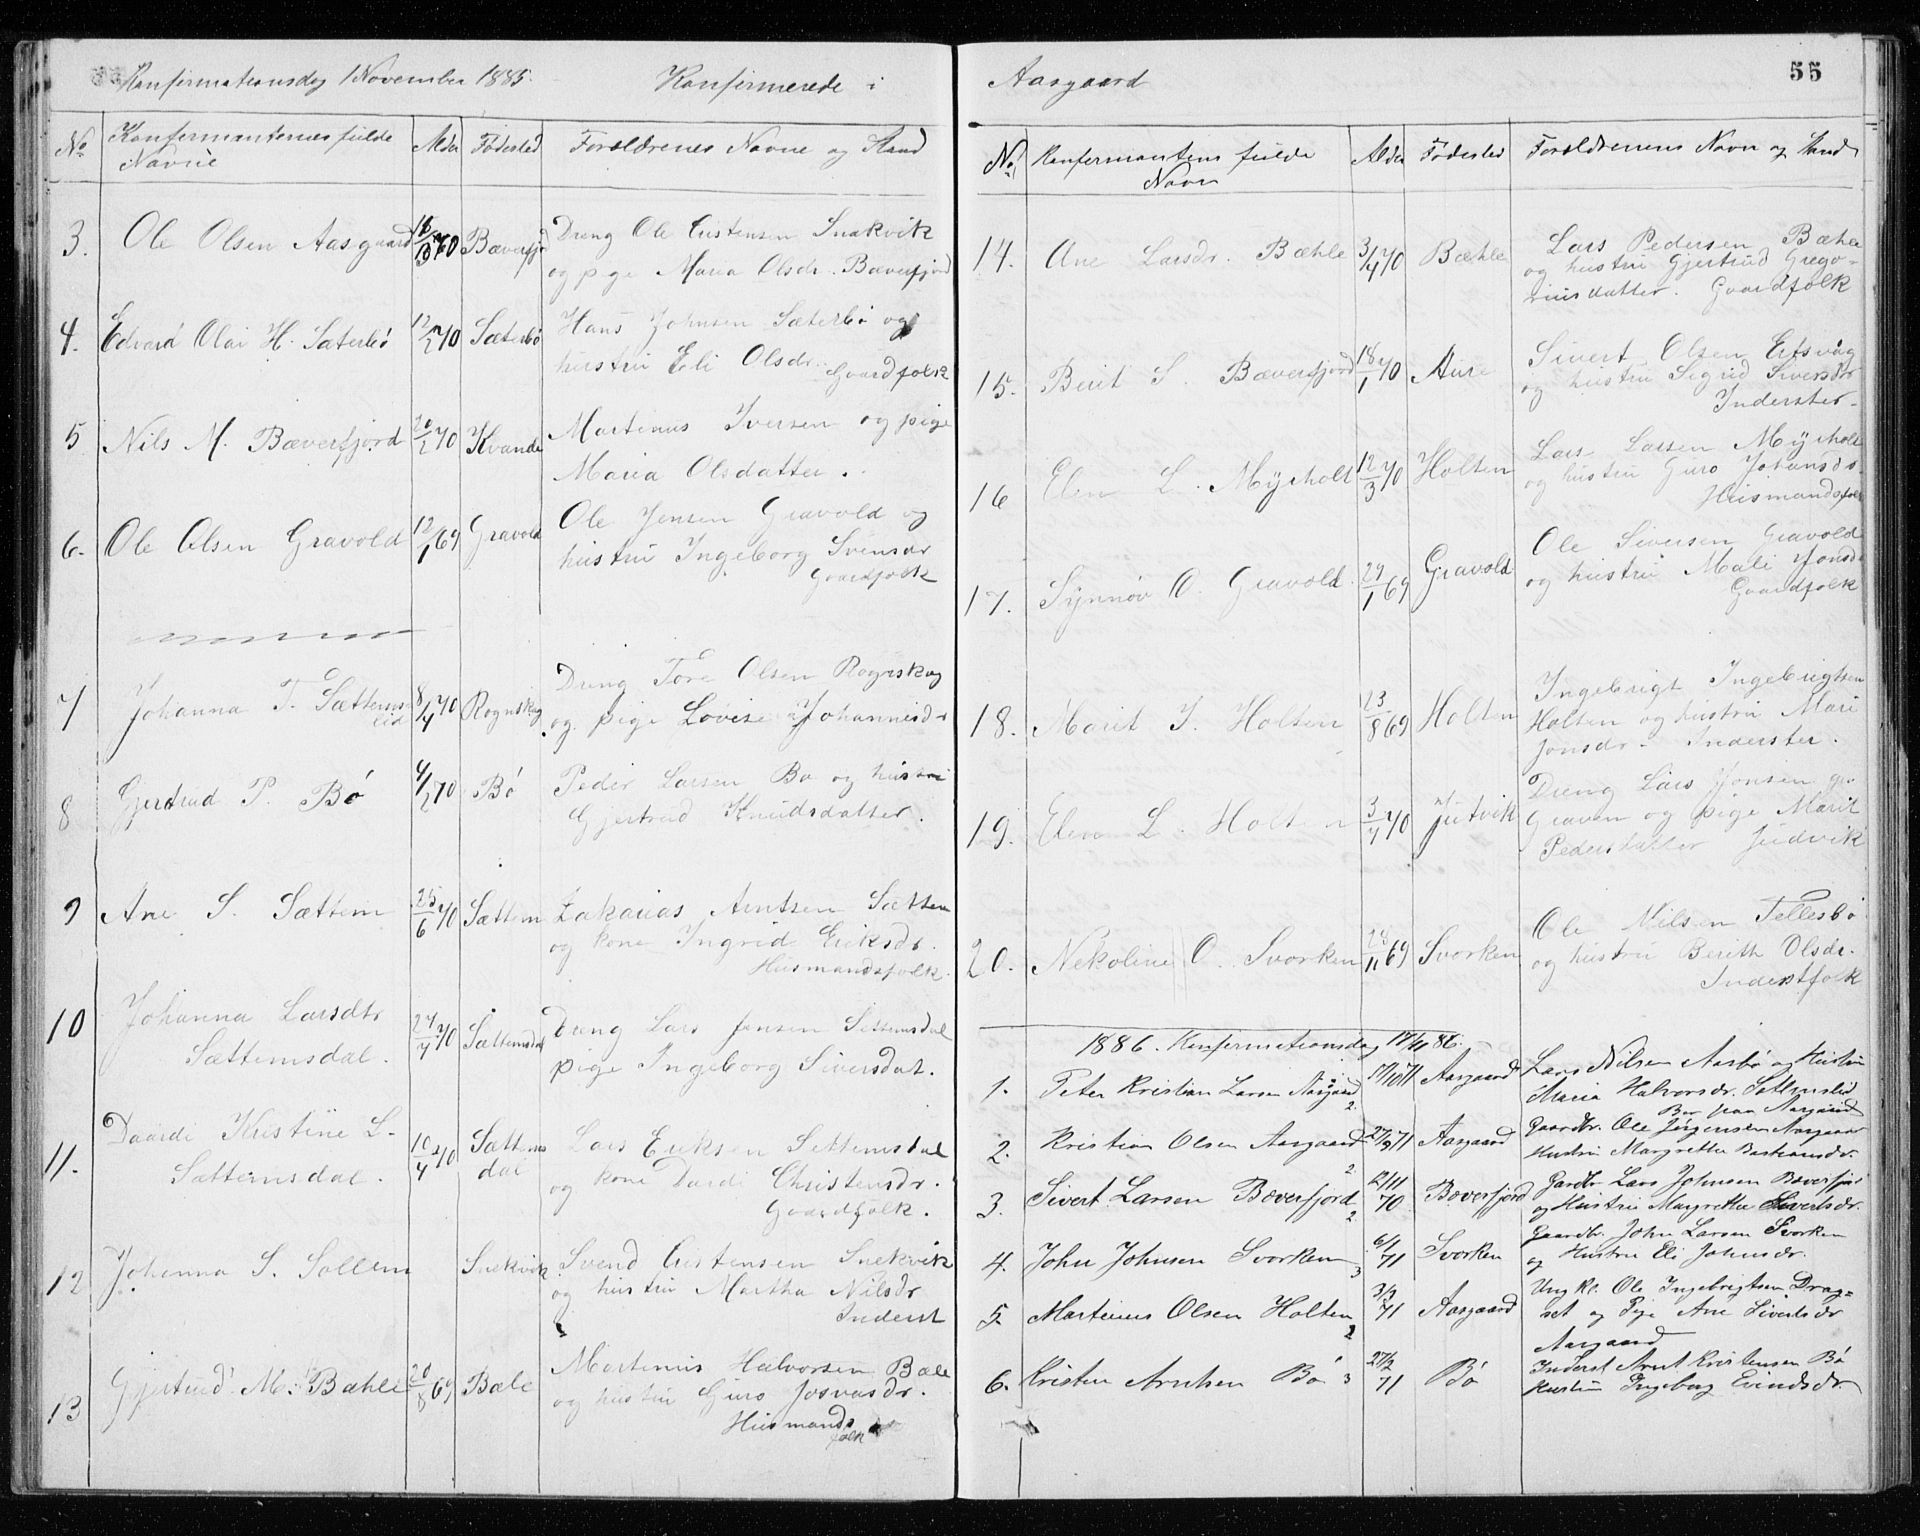 Konfirmationsdag 1 November 1885. Konfirmerede i
No Konfermanternes fulde Navne Alder Fødested Foreldrenes Navne og Stand
3. Ole Olsen Aasgaard 70 Bæverfjd Dreng Ole Eustensen Snekvik
og pige Maria Olsdr. Bæverfjord
4. Edvard Olai H. Sæterbø 12/2 70 Sæterbø Hans Johnsen Sæterbø og
hustru Eli Olsdr. Gaardfolk
5 Nils M. Bæverfjord 20/2 70 Kvande Martinus Iversen og pige
Maria Olsdatter.
6. Ole Olsen Gravold 12/1 69 Gravold Ole Jensen Gravold og
hustru Ingeborg Svensdr
Gaardfolk
7 Johanna T. Sættemslid 8/4 70 Rognskog Dreng Tore Olsen Rognskog
og pige Lovise Johannesdr
8 Gjertrud P. Bø 4/2 70 Bø Peder Larsen Bø og hustru
Gjertrud Knudsdatter.
9 Ane S. Sættem 25/6 70 Sættem Zakarias Arntsen Sættem
og kone Ingrid Eriksdr.
Husmandsfolk.
10 Johanna Larsdtr
Sættemsdal. 27/4 70 Sættemsdal Dreng Lars Jensen Settemsdal
pige Ingeborg Siversdat.
11. Daarde Kristine L.
Sættemsdal. 10/4 70 Sættemsdal Lars Eriksen Settemsdal
og kone Dardi Christensdr.
Gaardfolk.
12 Johanna S. Sollem Snekvik Svend Eustensen Snekvik
og hustru Martha Nilsdr
Inderst
13 Gjertrud M. Bæhle 28/8 69 Bæle Martinus Halvorsen Bæle
og hustru Guro Josvasdr.
Husmandsfolk
Aasgaard 55
No Konfermantens fulde Navn Alder Fødested Foreldrenens Navn og Stand
14. Ane Larsdr. Bæhle 3/4 70 Bæhle Lars Pedersen Bæhle
og hustru Gjertrud Grego-
riusdatter. Gaardfolk
15. Berit S. Bæverfjord 18/1 70 Aure Sivert Olsen Ertsvåg
og hustru Sigrid Siversdr
Inderster.
16 Elen L. Myrholt 12/3 70 Holten Lars Larsen Myrholt
og hustru Guro Johansdr.
Husmandsfolk
17. Synnøv O. Gravold. 29/1 69 Gravold Ole Siversen Gravold
og hustru Mali Jonsdr
Gaardfolk
18. Marit I. Holten 23/8 69 Holten Ingebrigt Ingebrigtsen
Holten og hustru Mari
Jonsdr. Inderster.
19. Elen L. Holten 3/7 70 Jutvik Dreng Lars Jonsen
Graven og pige Marit
Pedersdatter Judvik
20. Nekoline O. Svorken 28/11 69 Svorken Ole Nilsen Tellesbø
og hustru Berith Olsdr.
Inderstfolk
1886. Konfirmationsdag 17/11 86.
1. Peter Kristian Larsen Aasgaard 2. 17/10 71 Aasgaard Lars Nilsen Aasbø og Hustru
Maria Halvorsdr. Sættemslid
Bor paa Aasgaard
2. Kristian Olsen Aasgaard 2. 27/2 71 Aasgaard Gaardbr. Ole Jørgensen Aasgaar
Hustru Margrethe Bastiansdr.
3. Sivert Larsen Bæverfjord 2 12/11 70 Bæverfjord Gardbr Lars Johnsen Bæverfjor
og Hustru Margrethe Sivertsdr.
4. John Johnsen Svorken 3 6/1 71 Svorken Gaardbr. John Larsen Svorken
og Hustru Eli Johnsdr.
5. Martinus Olsen Holten 2 3/3 71 Aasgaard Ung Kl. Ole Ingebrigtsen Drag-
set og Pige Ane Sivertsdr
Aasgaard
6. Kristen Arntsen Bø 3 27/2 71 Bø Inderst Arnt Kristensen Bø
Hustru Ingeborg Evindsdr.